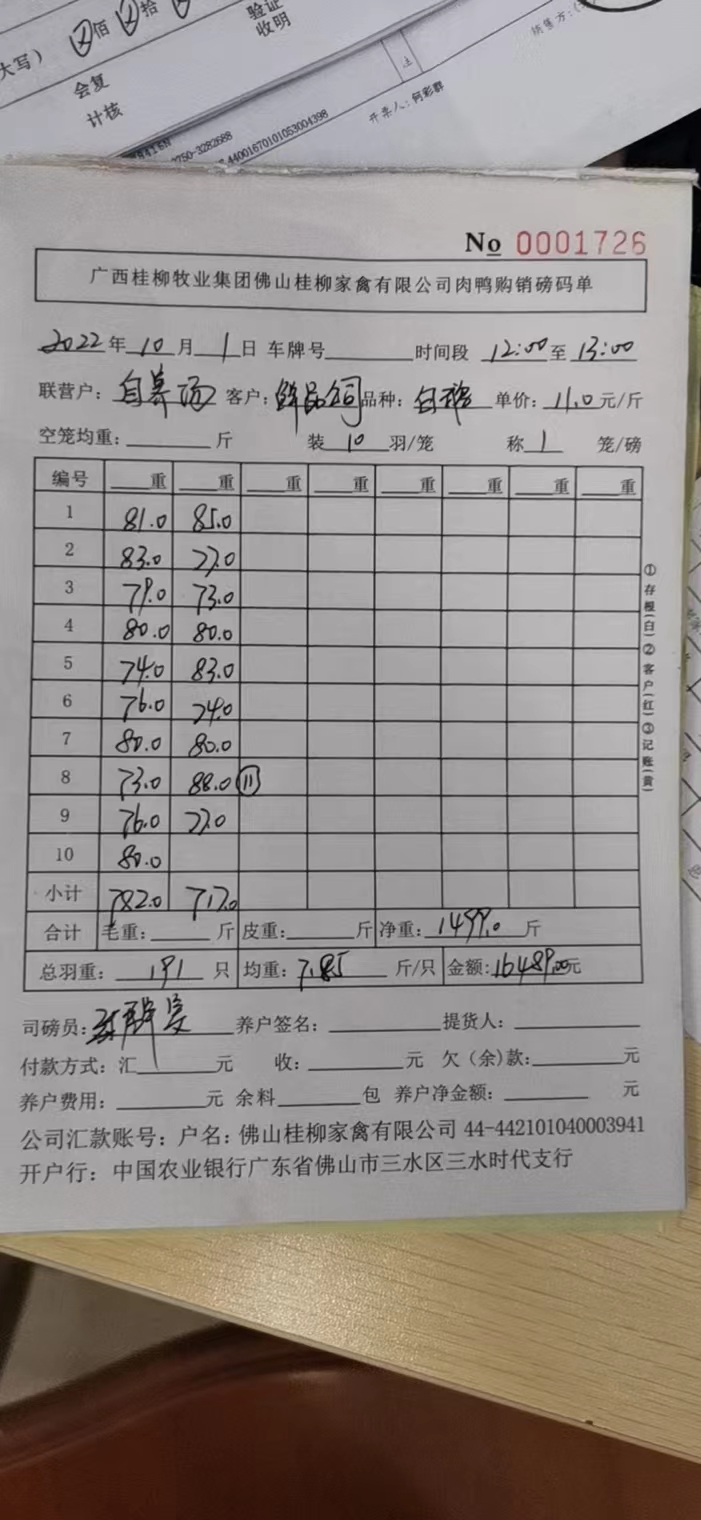 大写) 佰 拾
验证
收明
会复
计核
销售方:(
注
开票人:何彩群
750-3282688
44001670101053004398
No 0001726
广西桂柳牧业集团佛山桂柳家禽有限公司肉鸭购销磅码单
2022年10月1日 车牌号 时间段 12:00至13:00
联营户: 自养场 客户: 鲜品公司 品种: 白 单价: 11.0元/斤
空笼均重: 斤 装10羽/笼 称1笼/磅
编号 重 重 重 重 重 重 重 重
1 81.0 85.0
2 83.0 77.0
3 79.0 73.0
4 80.0 80.0
5 74.0 83.0
6 76.0 74.0
7 80.0 80.0
8 73.0 88.0 11
9 76.0 77.0
10 80.0
小计 782.0 717.0
合计 毛重: 斤 皮重: 斤 净重: 1499.0斤
总羽重: 191只 均重: 7.85斤/只 金额: 16489.00元
司磅员: 养户签名: 提货人:
付款方式: 汇 元 收: 元 欠(余)款: 元
养户费用: 元 余料 包 养户净金额: 元
公司汇款账号: 户名: 佛山桂柳家禽有限公司 44-442101040003941
开户行: 中国农业银行广东省佛山市三水区三水时代支行
①存根(白)②客户(红)③记账(黄)